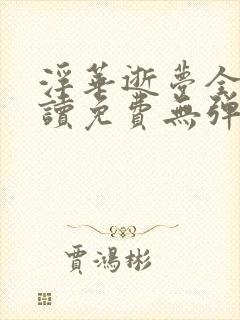 淫華逝夢全
讀免費無彈
賈鴻彬